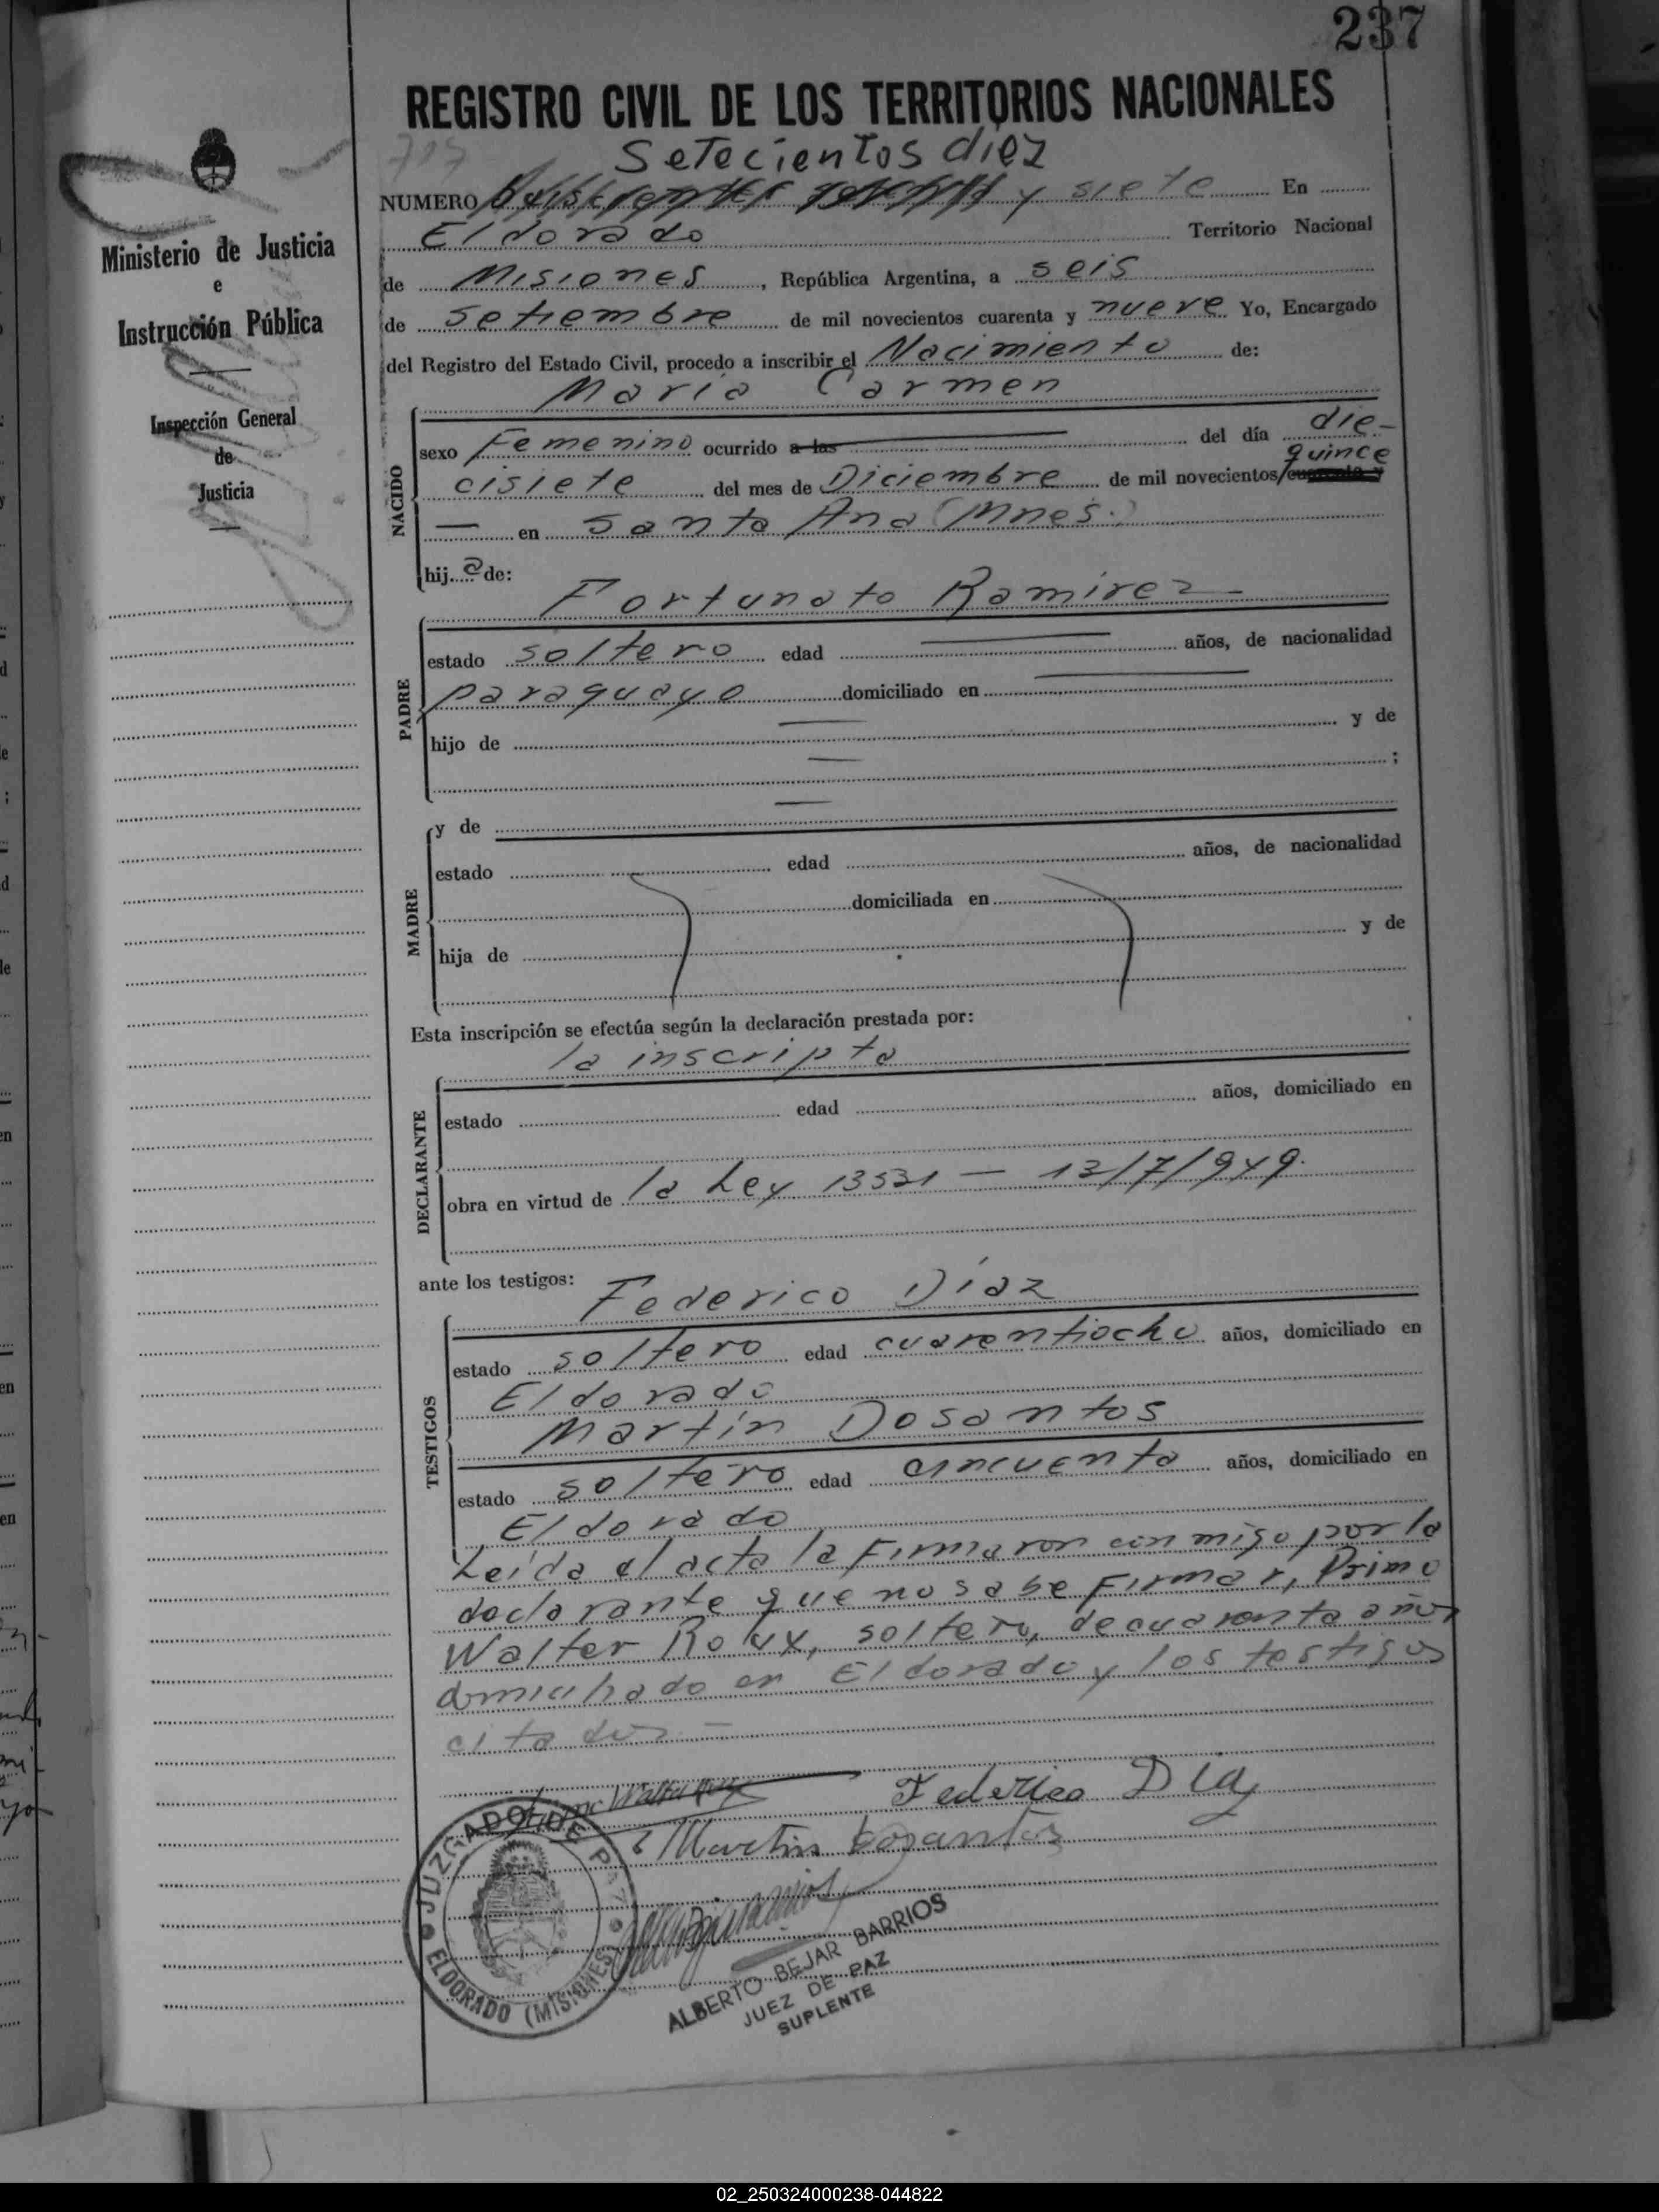 237
REGISTRO CIVIL DE LOS TERRITORIOS NACIONALES
717
Setecientos diez
NUMERO y siete En
Eldorado Territorio Nacional
de Misiones, República Argentina, a seis
de Setiembre de mil novecientos cuarenta y nueve Yo, Encargado
del Registro del Estado Civil, procedo a inscribir el Nacimiento de:
Maria Carmen
Ministerio de Justicia
e
Instrucción Pública
Inspección General
de
Justicia
NACIDO
sexo Femenino ocurrido a las del día die-
quince
cisiete del mes de Diciembre de mil novecientos/cuarenta y
— en Santa Ana (Mnes.)
hij a de:
Fortunato Ramirez -
PADRE
estado soltero edad años, de nacionalidad
paraguaya domiciliado en
hijo de y de
;
MADRE
y de
estado edad años, de nacionalidad
domiciliada en
hija de y de
Esta inscripción se efectúa según la declaración prestada por:
la inscripta
DECLARANTE
estado edad años, domiciliado en
obra en virtud de la Ley 13531 — 13/7/949.
ante los testigos: Federico Díaz
TESTIGOS
estado soltero edad cuarentiocho años, domiciliado en
Eldorado
Martín Dosantos
estado soltero edad cincuenta años, domiciliado en
Eldorado
Leída el acta la firmaron conmigo por la
declarante que no sabe firmar, Primo
Walter Roux, soltero, de cuarenta años
domiciliado en Eldorado y los testigos
citados —
Primo Walter Roux
Federico Díaz
Martin Dosantos
JUZGADO DE PAZ
ELDORADO (MISIONES)
ALBERTO BEJAR BARRIOS
JUEZ DE PAZ
SUPLENTE
02_250324000238-044822